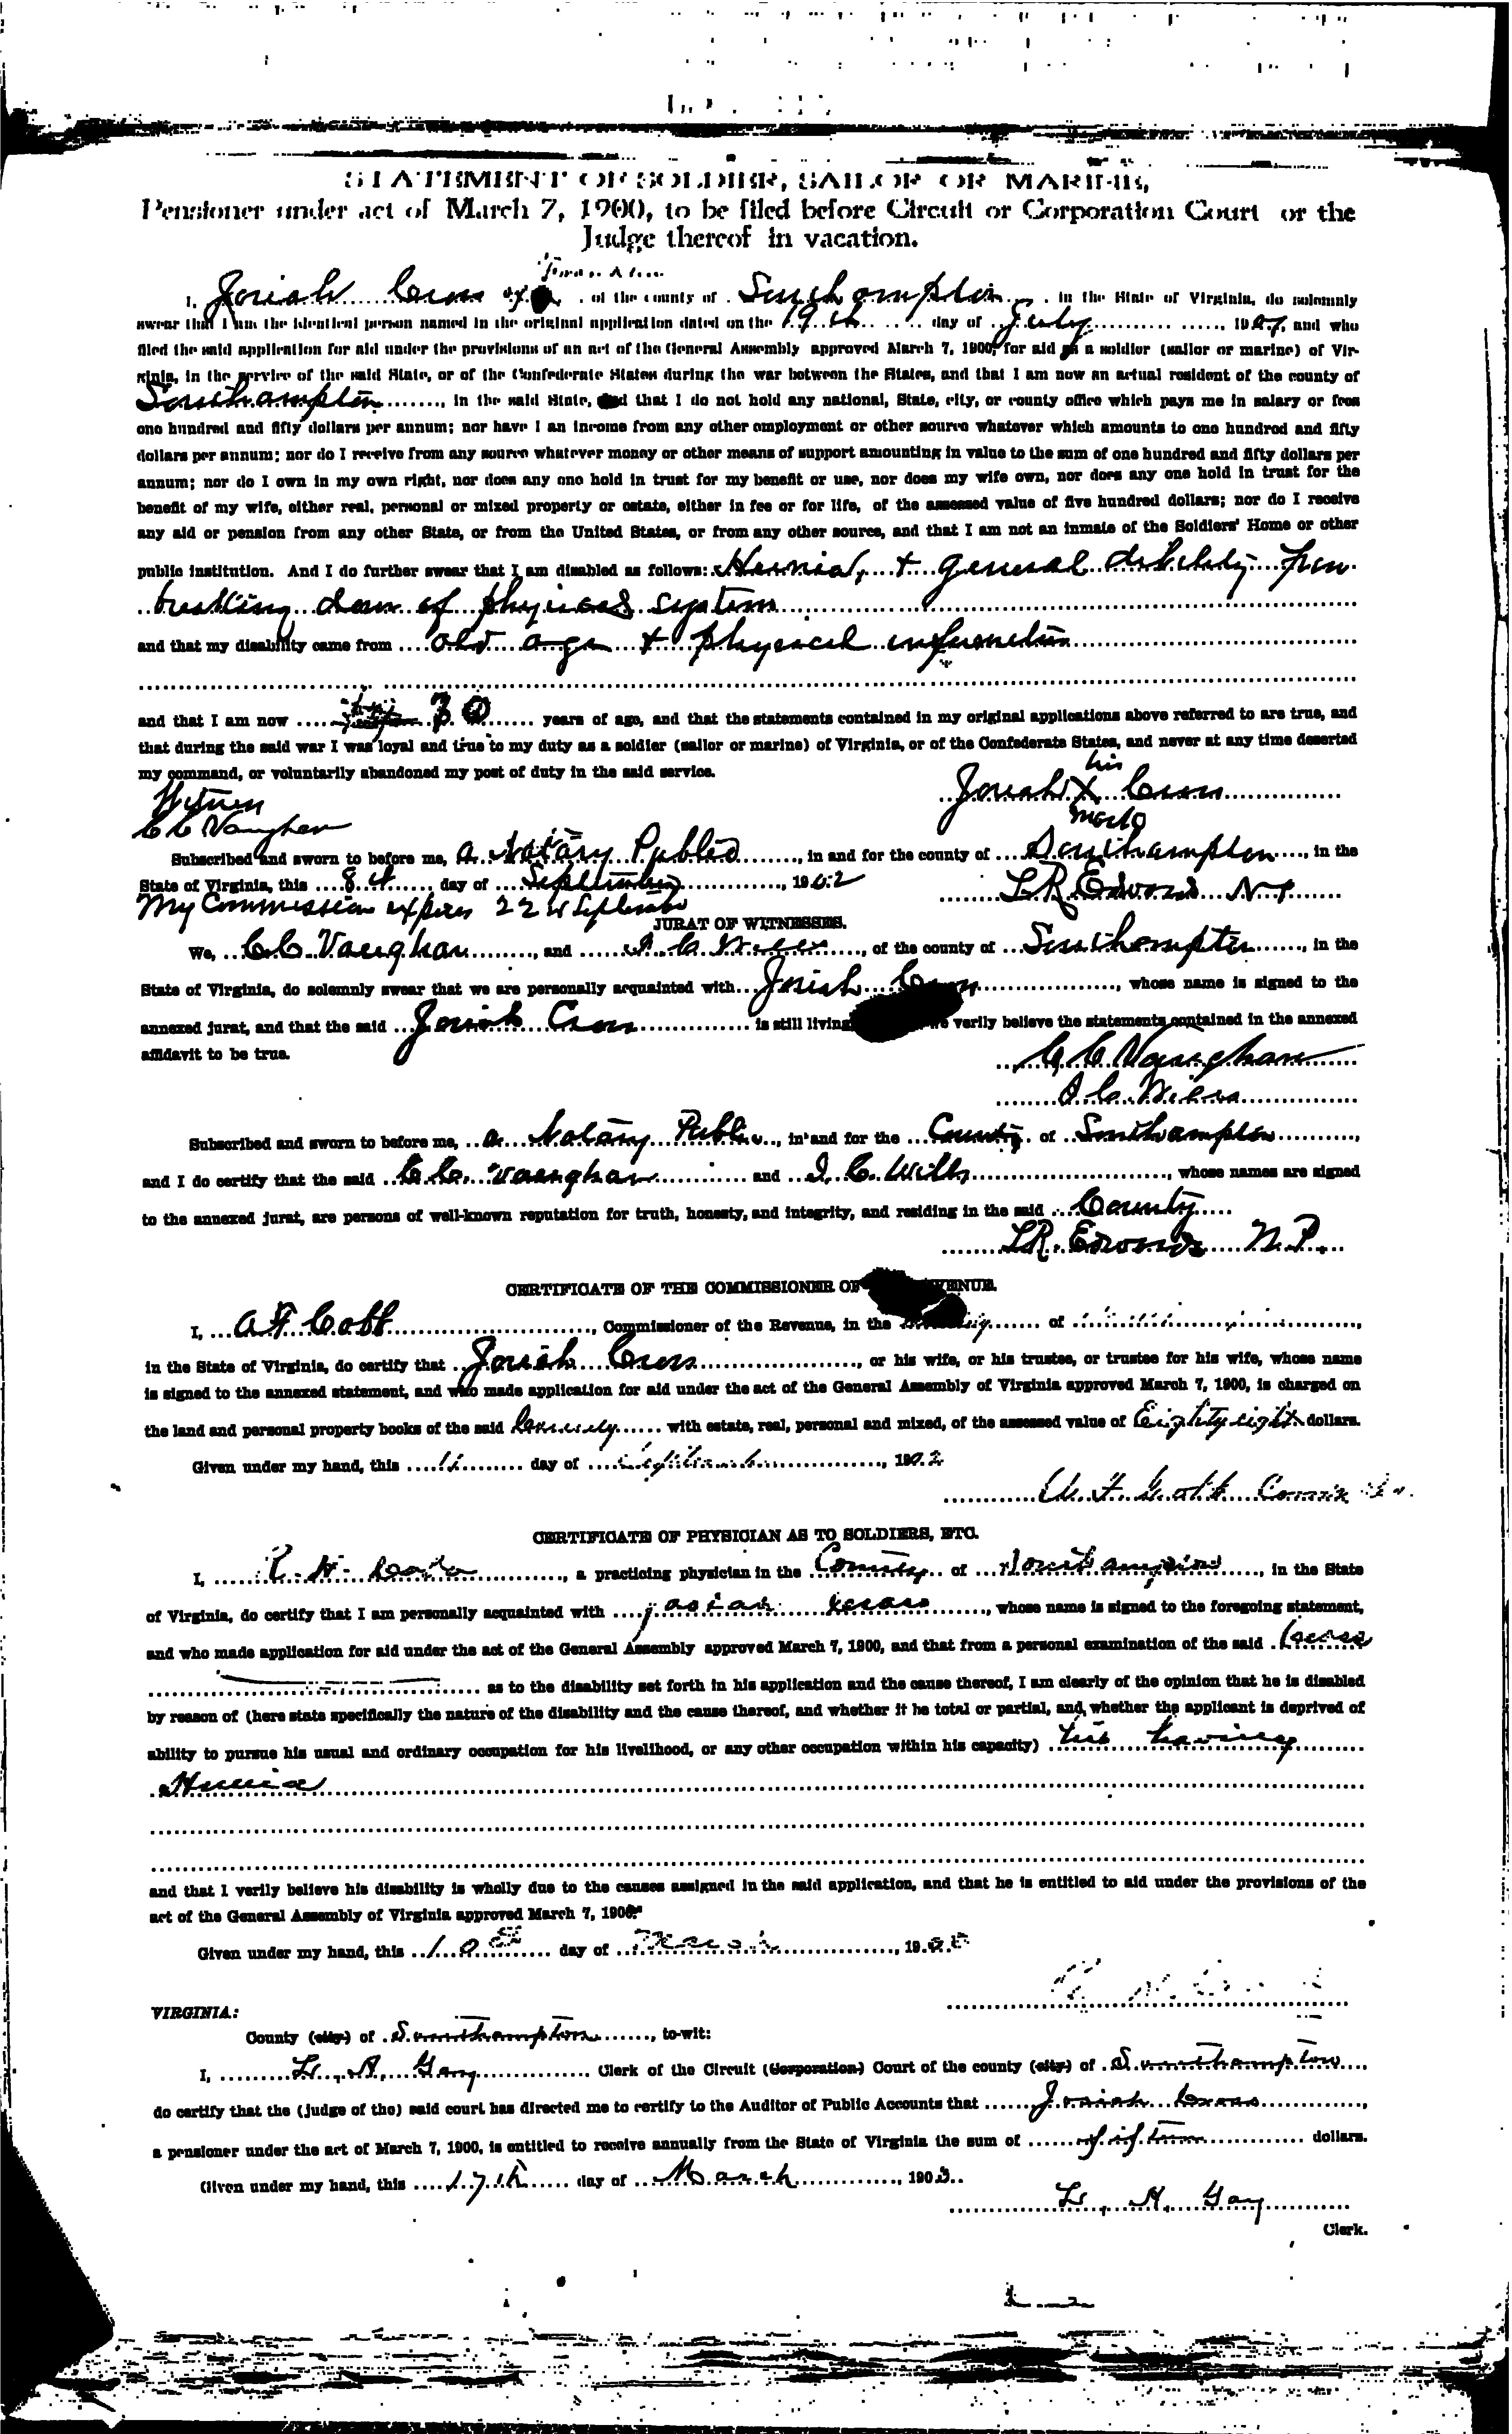 STATEMENT OF SOLDIER, SAILOR OR MARINE,
Pensioner under act of March 7, 1900, to be filed before Circuit or Corporation Court or the
Judge thereof in vacation.
I, Josiah Cross of the county of Southampton, in the State of Virginia, do solemnly
swear that I am the identical person named in the original application dated on the 19th day of July, 190 , and who
filed the said application for aid under the provisions of an act of the General Assembly approved March 7, 1900, for aid as a soldier (sailor or marine) of Vir-
ginia, in the service of the said State, or of the Confederate States during the war between the States, and that I am now an actual resident of the county of
Southampton, in the said State, and that I do not hold any national, State, city, or county office which pays me in salary or fees
one hundred and fifty dollars per annum; nor have I an income from any other employment or other source whatever which amounts to one hundred and fifty
dollars per annum; nor do I receive from any source whatever money or other means of support amounting in value to the sum of one hundred and fifty dollars per
annum; nor do I own in my own right, nor does any one hold in trust for my benefit or use, nor does my wife own, nor does any one hold in trust for the
benefit of my wife, either real, personal or mixed property or estate, either in fee or for life, of the assessed value of five hundred dollars; nor do I receive
any aid or pension from any other State, or from the United States, or from any other source, and that I am not an inmate of the Soldiers' Home or other
public institution. And I do further swear that I am disabled as follows: Hernia, + general debility from
breaking down of physical system
and that my disability came from old age + physical infirmities
and that I am now 70 years of age, and that the statements contained in my original applications above referred to are true, and
that during the said war I was loyal and true to my duty as a soldier (sailor or marine) of Virginia, or of the Confederate States, and never at any time deserted
my command, or voluntarily abandoned my post of duty in the said service.
his
Witness Josiah X Cross
C C Vaughan mark
Subscribed and sworn to before me, a Notary Public, in and for the county of Southampton, in the
State of Virginia, this 8th day of September, 1902 L.R. Edwards N P
My Commission expires 22nd September
JURAT OF WITNESSES.
We, C. C. Vaughan, and I. C. Wills, of the county of Southampton, in the
State of Virginia, do solemnly swear that we are personally acquainted with Josiah Cross, whose name is signed to the
annexed jurat, and that the said Josiah Cross is still living we verily believe the statements contained in the annexed
affidavit to be true.
C. C. Vaughan
I. C. Wills
Subscribed and sworn to before me, a Notary Public, in and for the County of Southampton,
and I do certify that the said C. C. Vaughan and I. C. Wills, whose names are signed
to the annexed jurat, are persons of well-known reputation for truth, honesty, and integrity, and residing in the said County
L.R. Edwards N. P.
CERTIFICATE OF THE COMMISSIONER OF REVENUE.
I, Cobb, Commissioner of the Revenue, in the County of
in the State of Virginia, do certify that Josiah Cross, or his wife, or his trustee, or trustee for his wife, whose name
is signed to the annexed statement, and who made application for aid under the act of the General Assembly of Virginia approved March 7, 1900, is charged on
the land and personal property books of the said County with estate, real, personal and mixed, of the assessed value of Eighty eight dollars.
Given under my hand, this 11 day of September, 1902
Cobb Com
CERTIFICATE OF PHYSICIAN AS TO SOLDIERS, ETC.
I, , a practicing physician in the County of Southampton, in the State
of Virginia, do certify that I am personally acquainted with Josiah Cross, whose name is signed to the foregoing statement,
and who made application for aid under the act of the General Assembly approved March 7, 1900, and that from a personal examination of the said Cross
as to the disability set forth in his application and the cause thereof, I am clearly of the opinion that he is disabled
by reason of (here state specifically the nature of the disability and the cause thereof, and whether it be total or partial, and whether the applicant is deprived of
ability to pursue his usual and ordinary occupation for his livelihood, or any other occupation within his capacity) his having
Hernia
and that I verily believe his disability is wholly due to the causes assigned in the said application, and that he is entitled to aid under the provisions of the
act of the General Assembly of Virginia approved March 7, 1900."
Given under my hand, this 10th day of March, 190
VIRGINIA:
County (city) of Southampton, to-wit:
I, L. A. Gay Clerk of the Circuit (Corporation) Court of the county (city) of Southampton
do certify that the (judge of the) said court has directed me to certify to the Auditor of Public Accounts that Josiah Cross,
a pensioner under the act of March 7, 1900, is entitled to receive annually from the State of Virginia the sum of fifteen dollars.
Given under my hand, this 17th day of March, 1903.
L. A. Gay
Clerk.